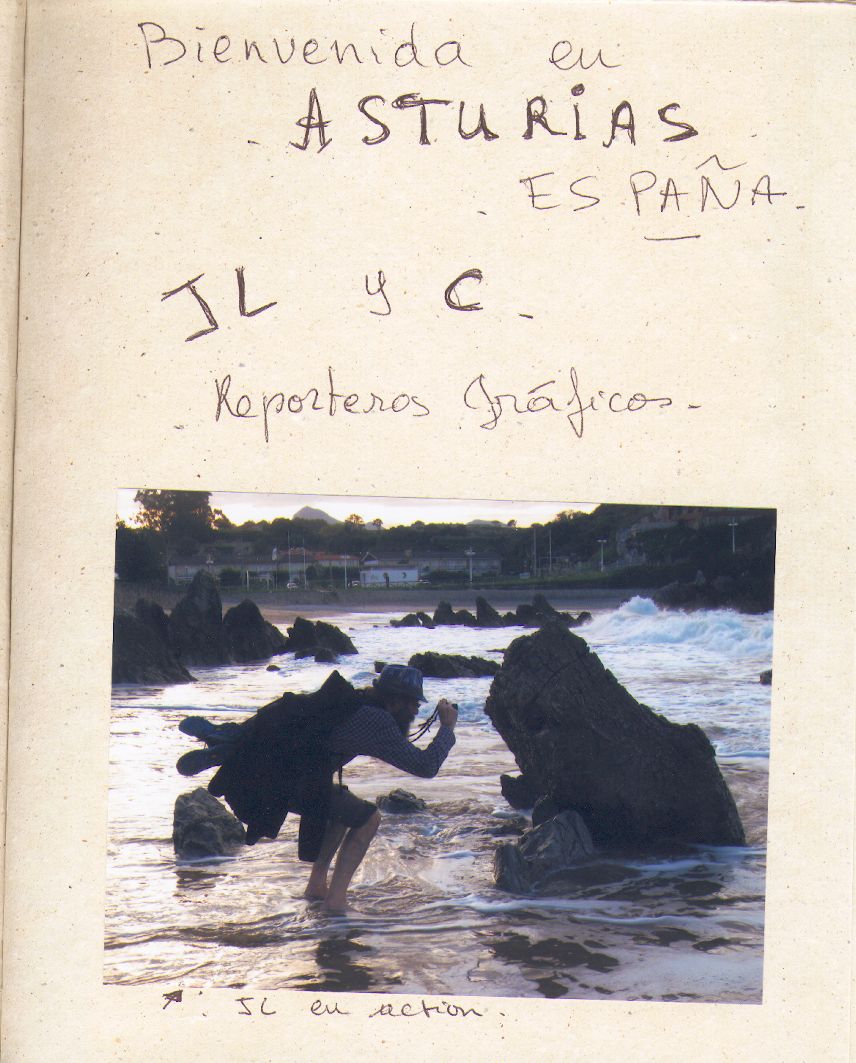 Bienvenida en
. ASTURiAS.
. ESPAÑA.
JL y C.
. Reporteros Gráficos.
↗: JL en action.